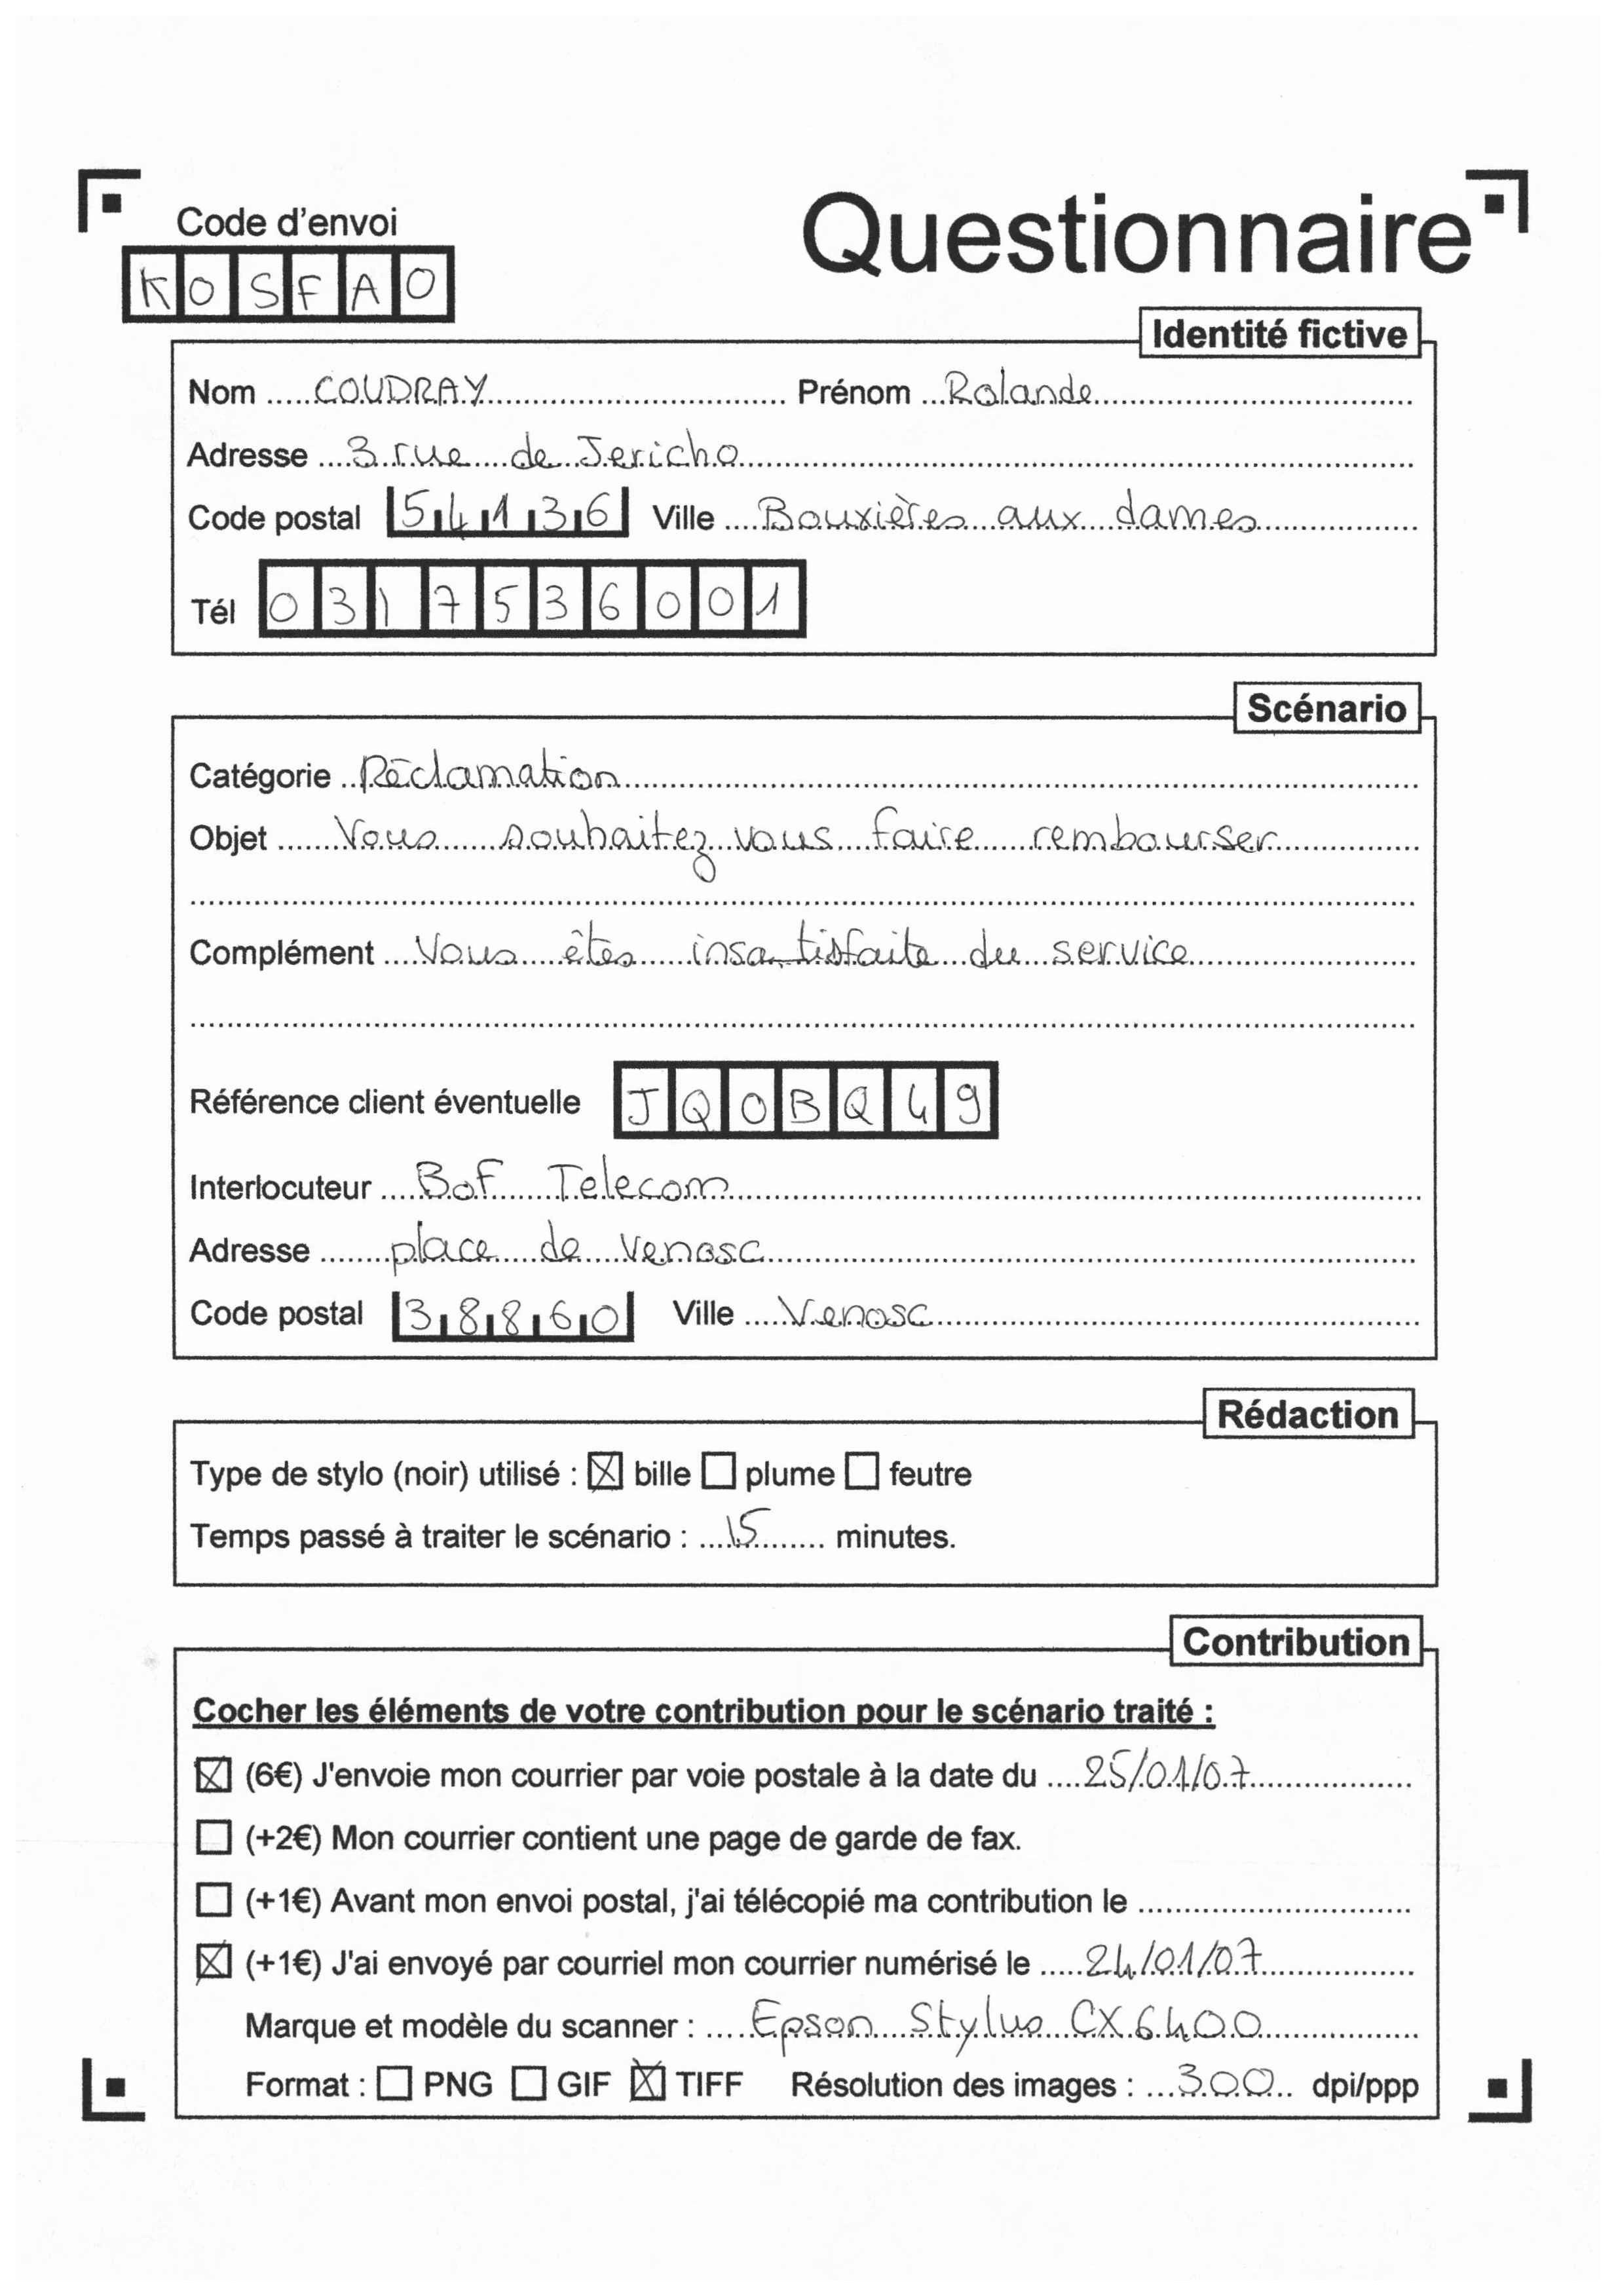 Code d'envoi
Questionnaire
KOSFAO
Identité fictive
Nom COUDRAY Prénom Rolande
Adresse 3 rue de Jericho
Code postal 54136 Ville Bouxières aux dames
Tél 0317536001
Scénario
Catégorie Réclamation
Objet Vous souhaitez vous faire rembourser
Complément Vous êtes insatisfaite du service
Référence client éventuelle JQOBQ49
Interlocuteur BoF Telecom
Adresse place de Venosc
Code postal 38860 Ville Venosc
Rédaction
Type de stylo (noir) utilisé : ☒ bille ☐ plume ☐ feutre
Temps passé à traiter le scénario : 15 minutes.
Contribution
Cocher les éléments de votre contribution pour le scénario traité :
☒ (6€) J'envoie mon courrier par voie postale à la date du 25/01/07
☐ (+2€) Mon courrier contient une page de garde de fax.
☐ (+1€) Avant mon envoi postal, j'ai télécopié ma contribution le
☒ (+1€) J'ai envoyé par courriel mon courrier numérisé le 24/01/07
Marque et modèle du scanner : Epson Stylus CX6400
Format : ☐ PNG ☐ GIF ☒ TIFF Résolution des images : 300 dpi/ppp